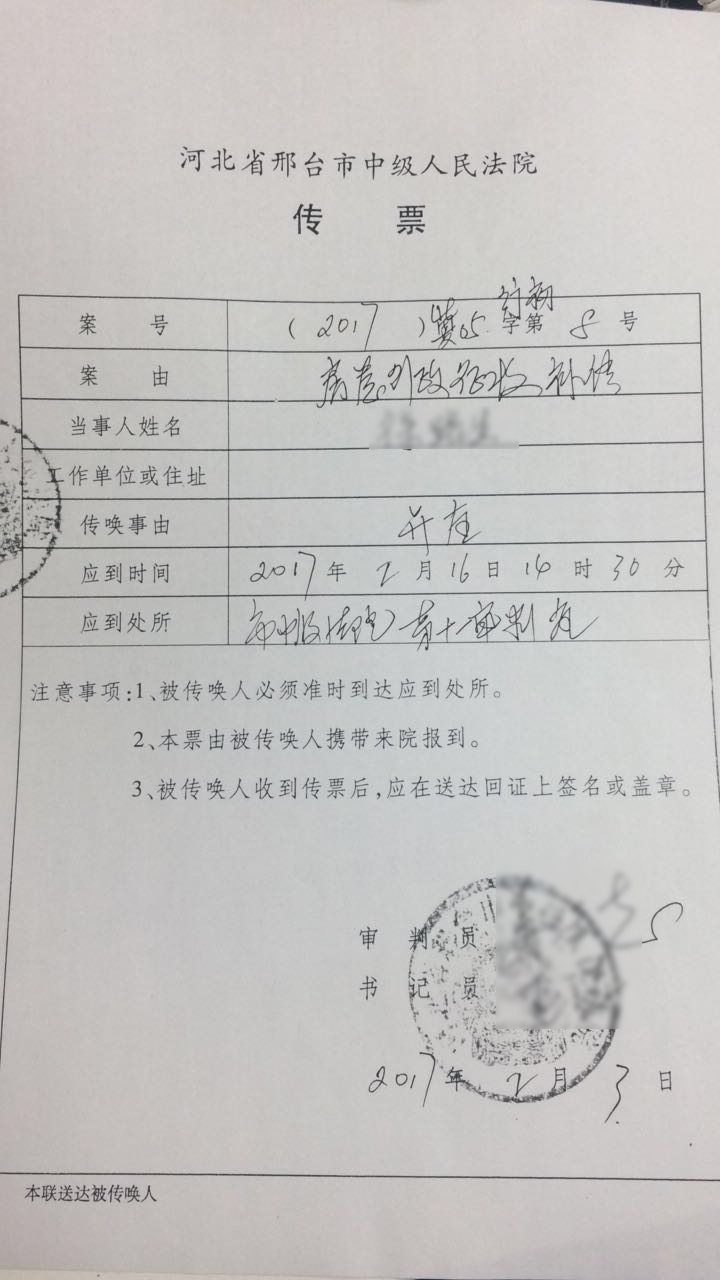 河北省邢台市中级人民法院
传 票
案 号 (2017)冀05行初字第8号
案 由 行政征收补偿
当事人姓名
工作单位或住址
传唤事由 开庭
应到时间 2017年2月16日14时30分
应到处所 市中级法院第十审判庭
注意事项:1、被传唤人必须准时到达应到处所。
2、本票由被传唤人携带来院报到。
3、被传唤人收到传票后,应在送达回证上签名或盖章。
审 判 员
书 记 员
2017年2月3日
本联送达被传唤人